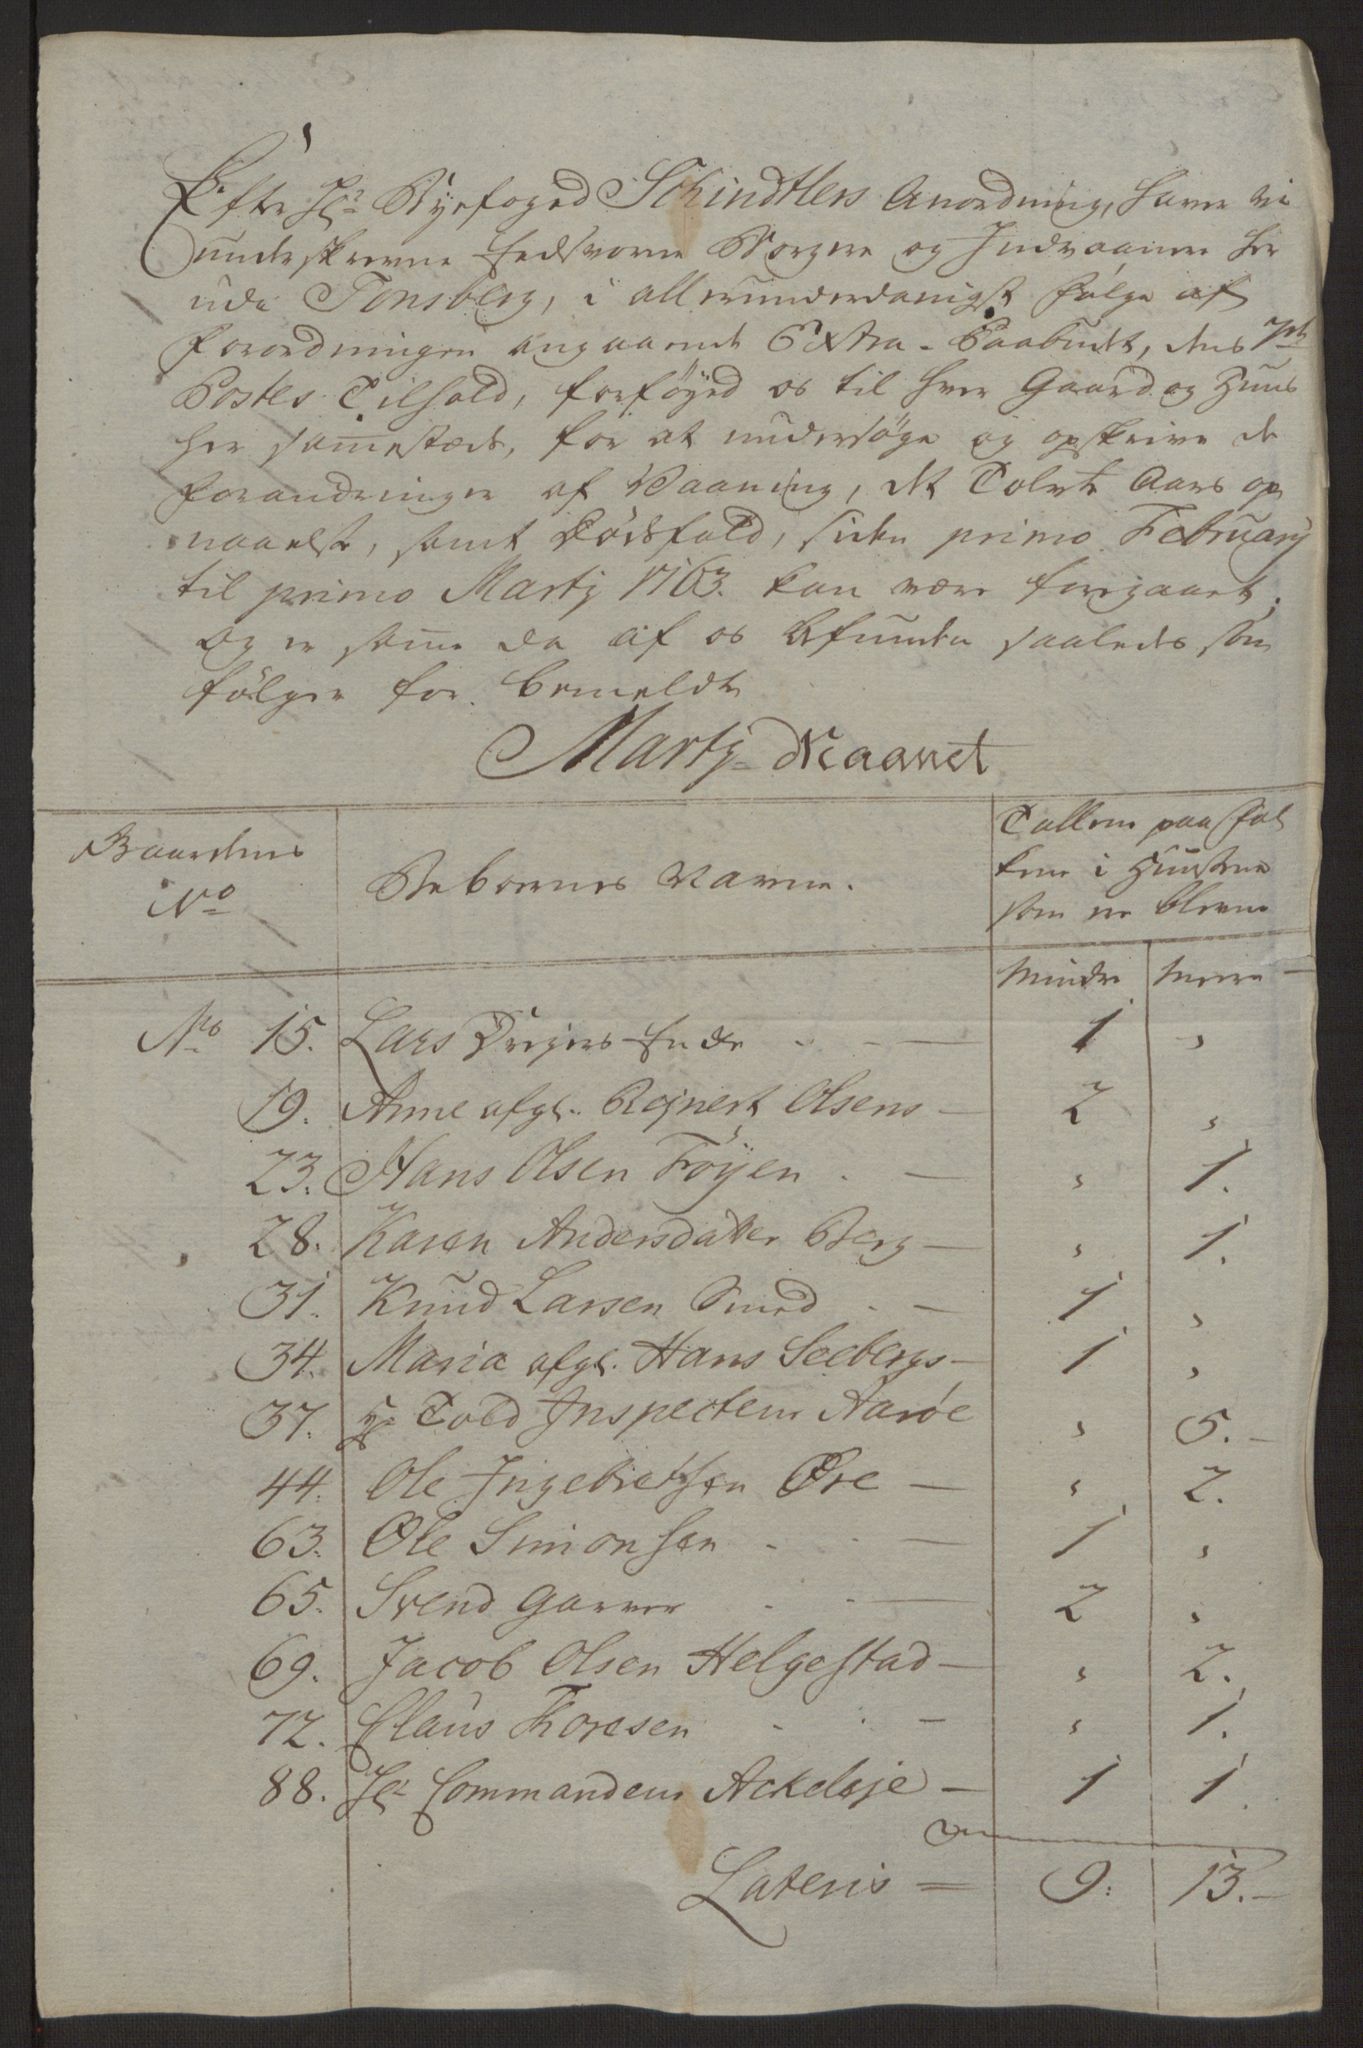 Efter Hr. Byefoged Schindtlers Anordning, haver vi
underskrevne Eedsvorne Borgere og Indvaanere her
udi Tonsberg, i allerunderdanigst følge af
Forordningen angaaende Extra-Paabudt, dens 7de
Postes Tilhold, forføyed os til hver Gaard og Huus
her sammestæds, for at undersøge og opskrive de
forandringer af Vaaning, det Tolvte Aars op
naaelse, samt Dødsfald, siden primo February
til primo Martj 1763. kan være foregaaet,
og er samme da af os befunden saaledes som
følger for bemeldte
Martj Maanet
Gaardenes
No
Beboernes Navne.
Tallene paa Fol
kene i Huusene
som ere blevne
Mindre Meere
No 15. Lars Dreyers Enke - 1 "
19. Anne afgl. Rejnert Olsens - 2 "
23. Hans Olsen Föyen - " 1.
28. Karen Andersdatter Berg - " 1.
31. Knud Larsen Smed - 1 "
34. Maria afgl. Hans Seebergs - 1 "
37. Hr. Told Inspecteur Aarøe " 5.
44. Ole Ingebretsen Øre - " 2.
63. Ole Simonsen - 1 "
65. Svend Garver - 2 "
69. Jacob Olsen Helgestad - " 2.
72. Claus Thoresen - " 1.
88. Hr Commandeur Ackeleje - 1 1.
Lateris = 9: 13.-